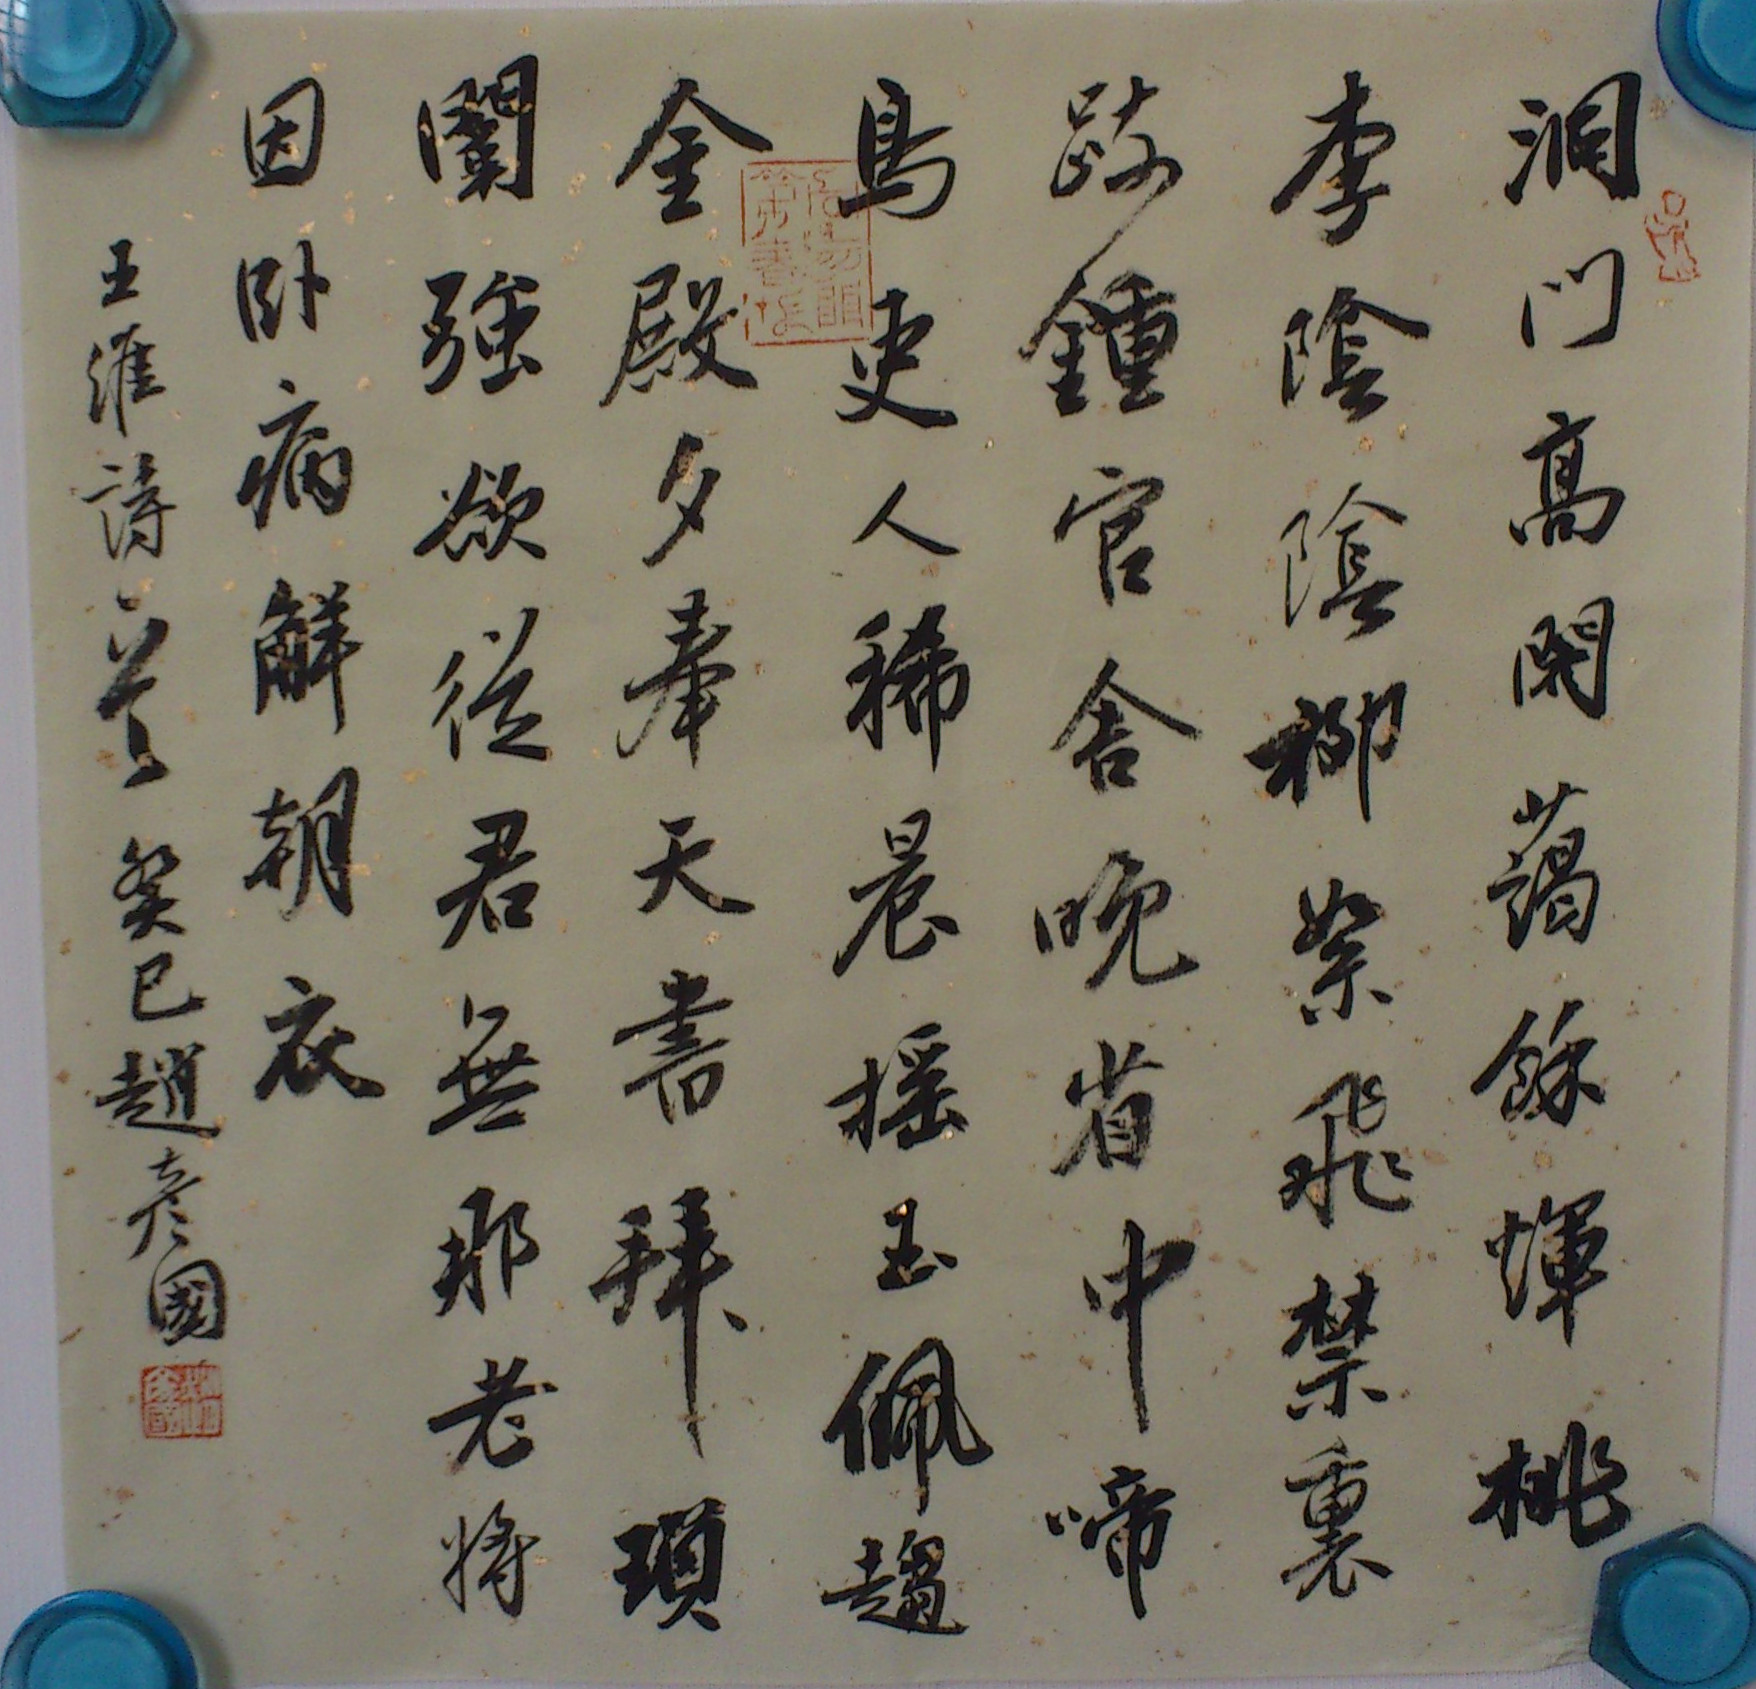 洞門高閣藹餘煇桃
李陰陰柳絮飛禁裏
踈鍾官舍晚省中啼
鳥吏人稀晨摇玉佩趨
金殿夕奉天書拜瑣
闈強欲從君無那老將
因卧病解朝衣
王維詩一首癸巳趙彦國